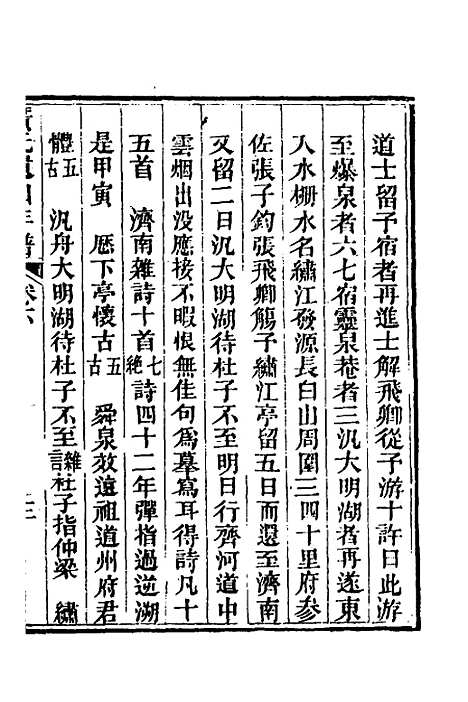 道士留予宿者再進士解飛卿從予游十許日此游
至爆泉者六七宿靈泉菴者三汎大明湖者再遂東
入水柵水名繡江發源長白山周圍三四十里府參
佐張子鈞張飛卿觴予繡江亭留五日而還至濟南
又留二日汎大明湖待杜子不至明日行齊河道中
雲烟出没應接不暇恨無佳句爲摹寫耳得詩凡十
五首　濟南雜詩十首七絶詩四十二年彈指過逆溯
是甲寅　厯下亭懷古五古　舜泉效遠祖道州府君
體五古　汎舟大明湖待杜子不至雜言杜子指仲梁　繡
年譜　卷六